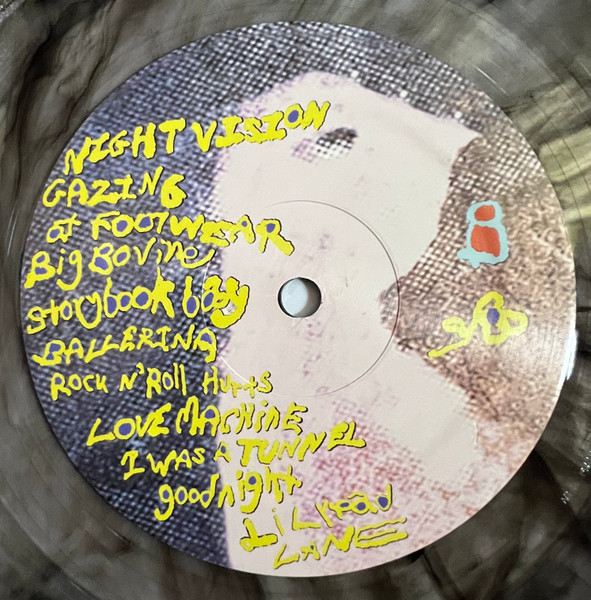 NIGHT VISION
GAZING
at FOOTWEAR
Big Bovine
storybook boy
BALLERINA
ROCK N' Roll HuRtS
LOVE MACHiNE
I WAS A TUNNEL
goodnight
LiL
LANE